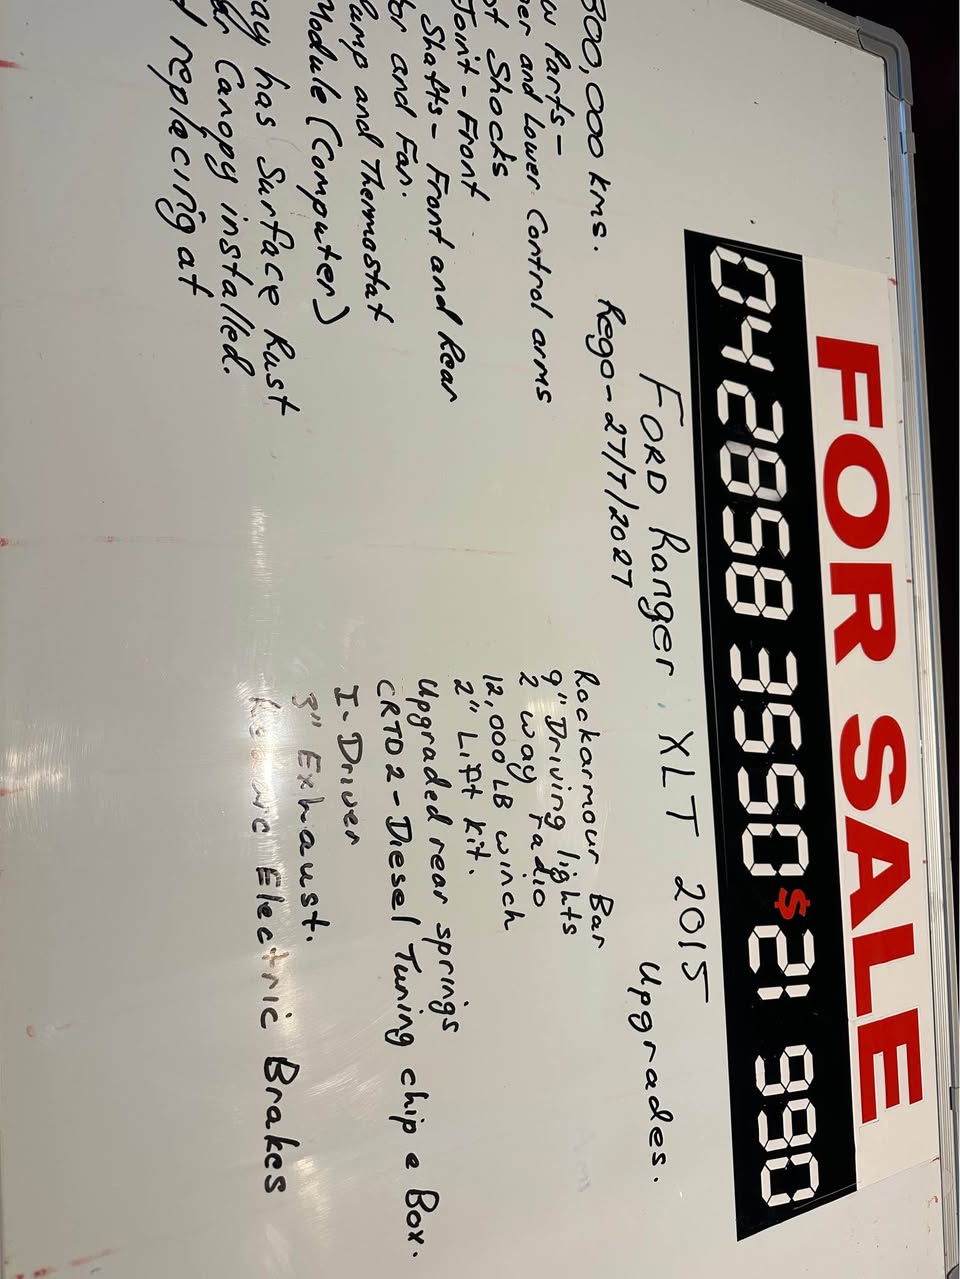 FOR SALE
042858 3550 $21 990
FORD Ranger XLT 2015
300,000 kms. Rego - 27/7/2027
Parts -
and Lower Control arms
Shocks
Joint - Front
Shafts - Front and Rear
and Fan.
and Thermostat
Module (Computer)
has Surface Rust
Canopy installed.
replacing at
Upgrades.
Rockarmour Bar
9" Driving lights
2 way radio
12,000 LB winch
2" Lift kit.
Upgraded rear springs
CRTD2 - Diesel Tuning chip e Box.
I-Driver
3" Exhaust.
Electric Brakes